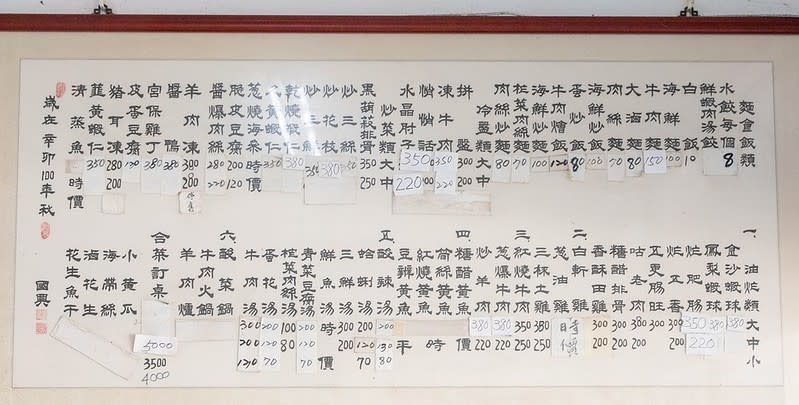 麵食飯類
水餃每個 8
鮮蝦肉湯餃
白飯 10
海鮮炒麵 100
牛肉炒麵 150
大滷麵 80
肉絲炒麵 70
海鮮炒飯 100
蛋炒飯 80
牛肉燴飯 120
海鮮燴麵 100
榨菜肉絲麵 70
肉絲炒麵 80
冷盤類 大 中
拼盤 300 200
凍牛肉 350 220
悄悄話
水晶肘子 350 220
炒菜類 大 中
黑胡椒排骨 350 250
炒三絲
炒花枝 380
炒三鮮 350
乾燒蝦仁 380
蔥燒海參 時價
脆皮豆腐 200 120
醬爆肉絲 280 220
羊肉凍 300 200
醬鴨 380
宮保雞丁 380
皮蛋豆腐 120
豬耳凍 280 200
韮黃蝦仁 350
清蒸魚 時價
歲在辛卯100年秋
一.油炸類 大 中 小
金沙蝦球 380
鳳梨蝦球 380
炸肥腸 350 220
炸五香 300 200
五更腸旺 300
咕老肉 300 200
糖醋排骨 300 200
香酥田雞 300 200
二.白斬雞
蔥油雞
三杯土雞 380 250
三.紅燒牛肉 350 250
蔥爆牛肉 380 220
炒羊肉 380 220
四.糖醋黃魚 價
筍絲黃魚
紅燒黃魚 時
豆瓣黃魚
五.酸辣湯 200 130 80
蛤蜊湯 200 120 70
三鮮湯 300 200
鮮魚湯 時價
青菜豆腐湯 200 120 70
榨菜肉絲湯 100 80
蛋花湯 200 120 70
牛肉湯 300 200 120
六.酸菜鍋
牛肉火鍋
羊肉爐
合菜訂桌 5000 3500 4000
小黃瓜
海帶絲
滷花生
花生魚干
國興